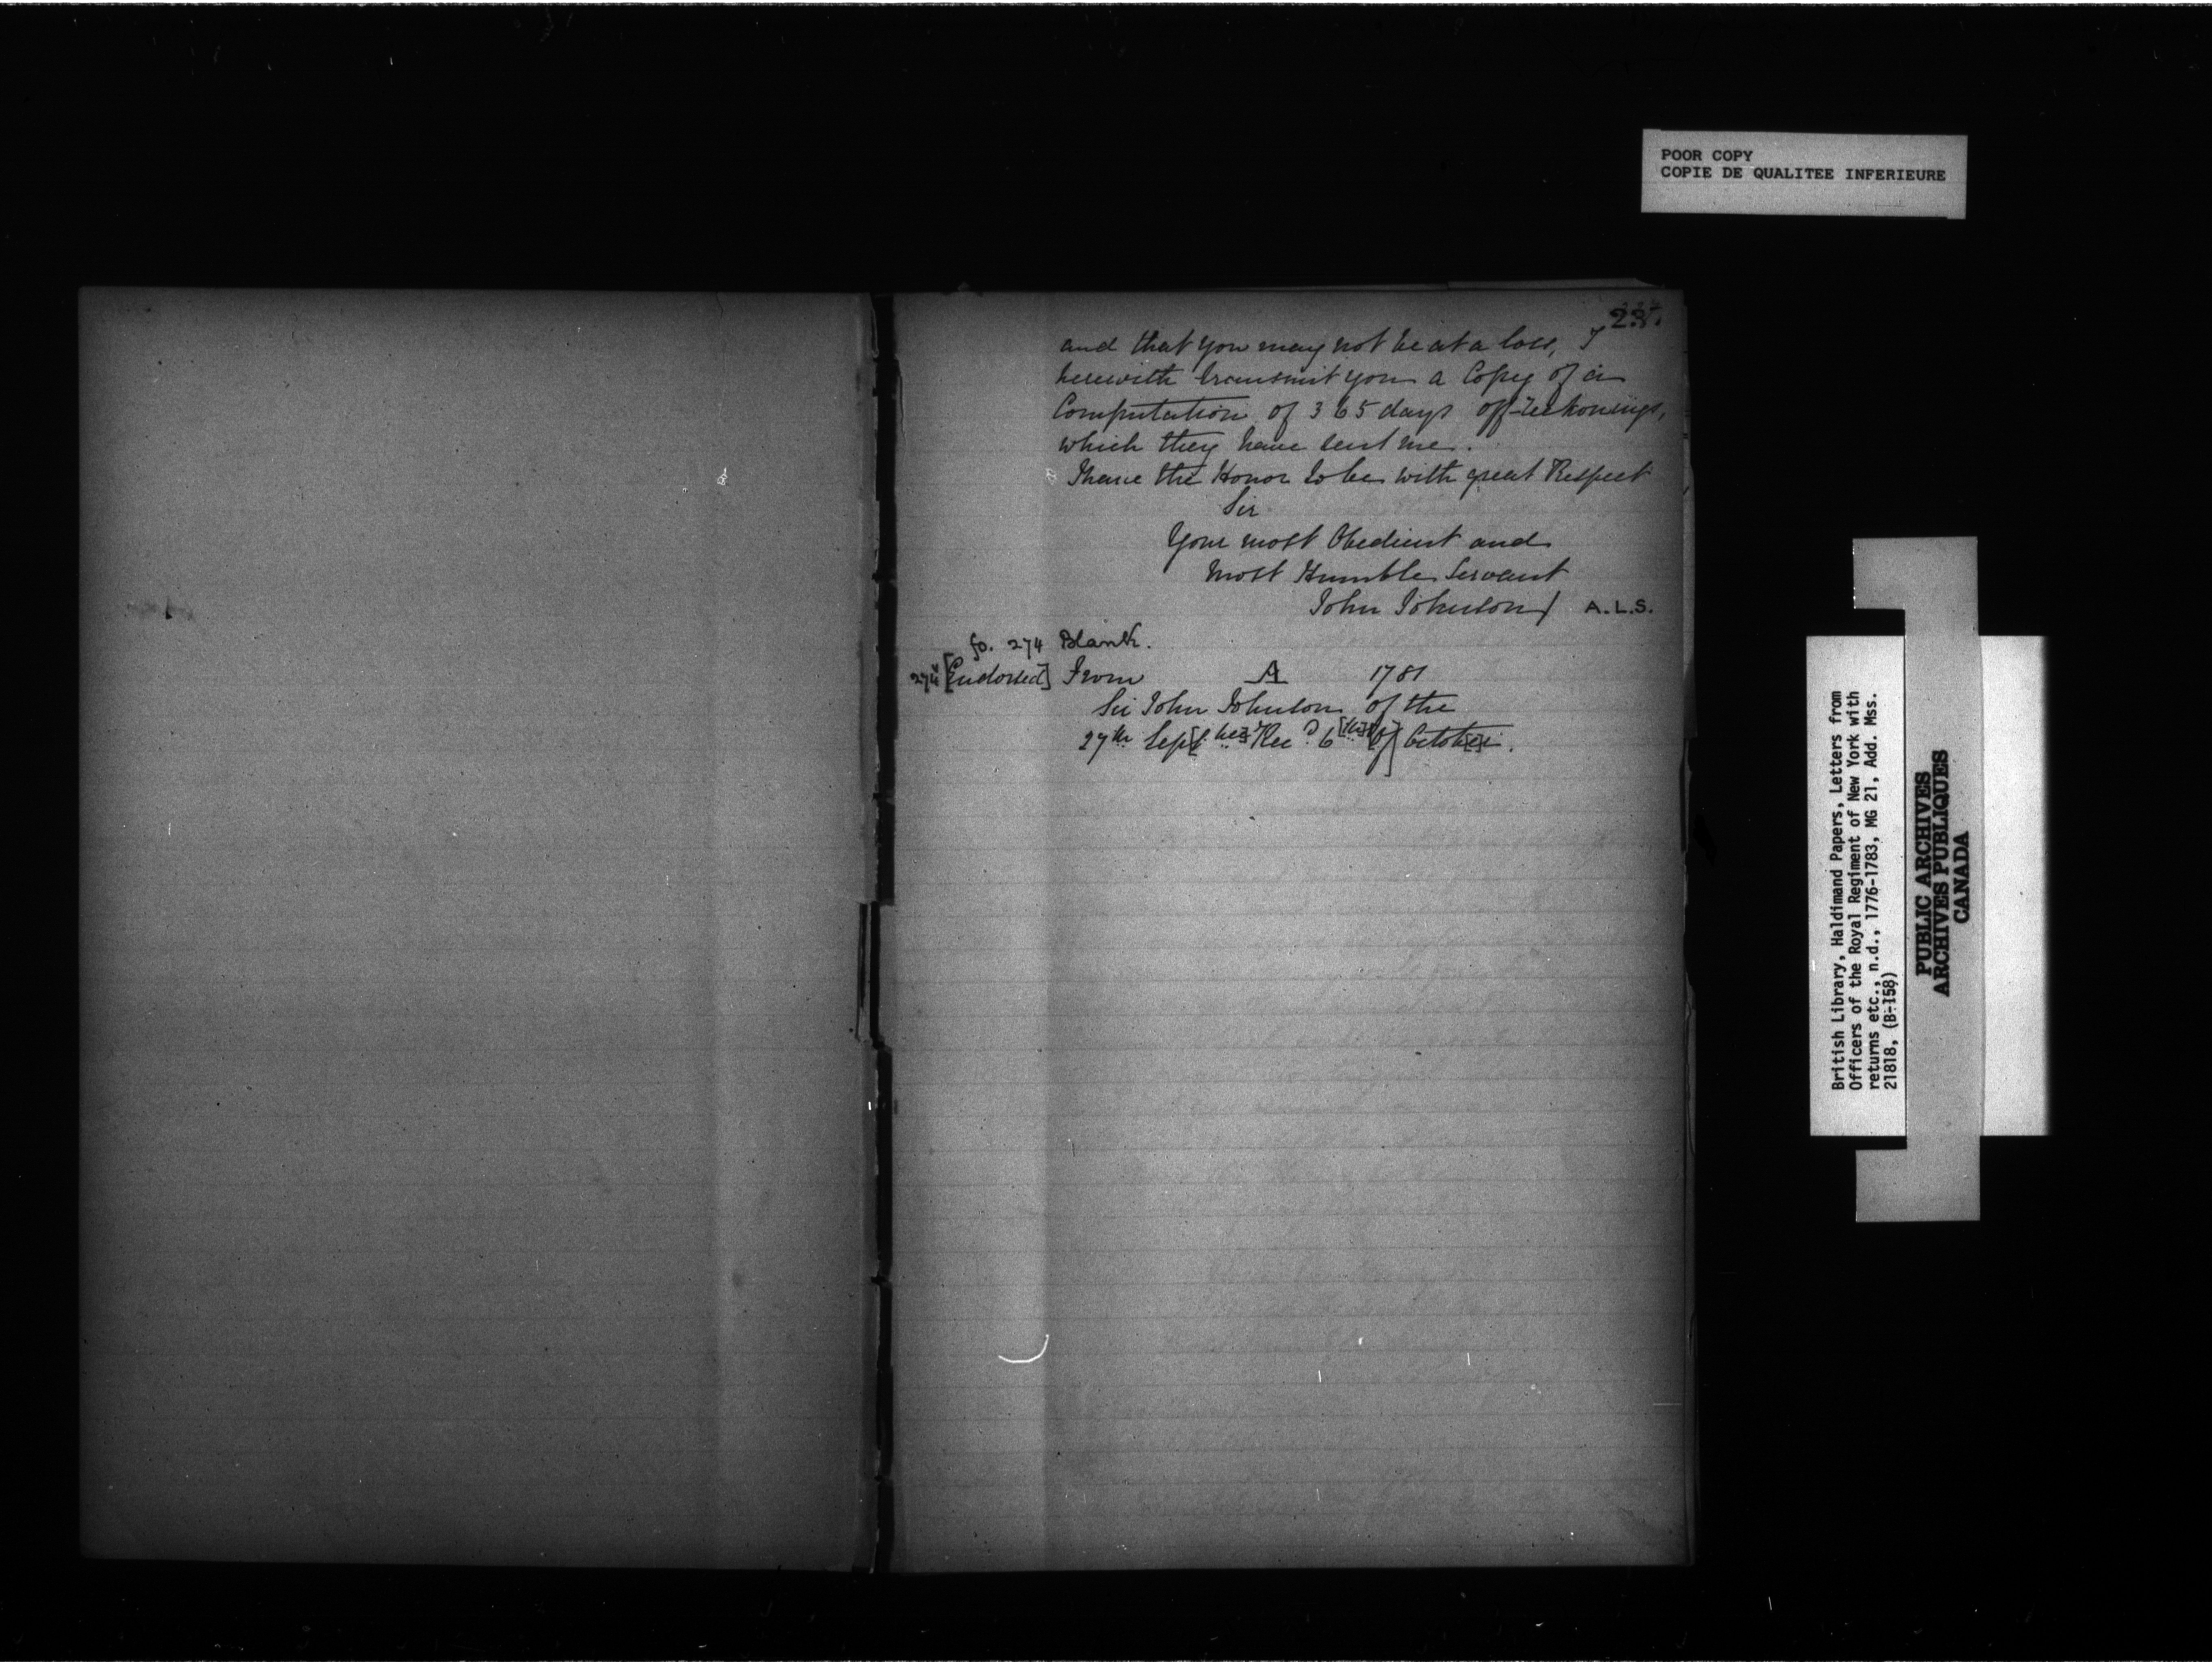 POOR COPY
COPIE DE QUALITEE INFERIEURE
and that you may not be at a loss, I
herewith transmit you a Copy of a
Computation of 365 days off-reckonings,
which they have sent me.
I have the Honor to be with great Respect
Sir
Your most Obedient and
Most Humble Servant
John Johnson / A.L.S.
fo. 274 Blank.
274v [Endorsed] From A 1781
Sir John Johnson of the
27th Sept[ber] Rec'd 6[th of] Octob[e]r.
British Library, Haldimand Papers, Letters from
Officers of the Royal Regiment of New York with
returns etc., n.d., 1776-1783, MG 21, Add. Mss.
21818, (B-158)
PUBLIC ARCHIVES
ARCHIVES PUBLIQUES
CANADA